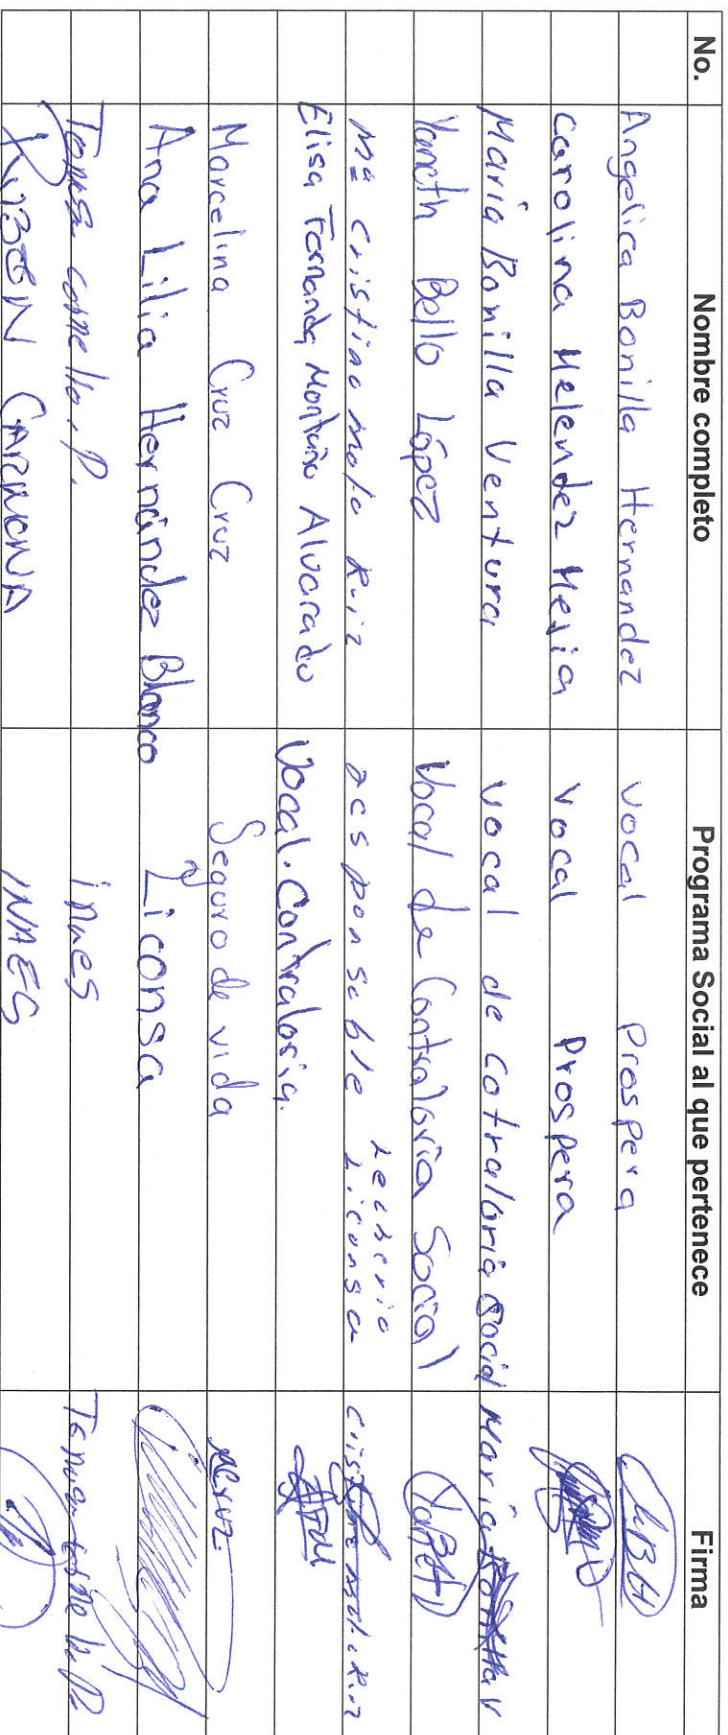 No. Nombre completo Programa Social al que pertenece Firma
Angelica Bonilla Hernandez vocal Prospera
Carolina Melendez Mejia vocal Prospera
Maria Bonilla Ventura vocal de Cotraloria Social Maria
Yaneth Bello López Vocal de Contraloria Social
Ma Cristina mota Ruiz responsable Lecheria Liconsa
Elisa Fernanda Montaño Alvarado Vocal. Contraloria.
Marcelina Cruz Cruz Seguro de vida MCruz
Ana Lilia Hernández Blanco Liconsa
P. inaes
CARMONA INAES